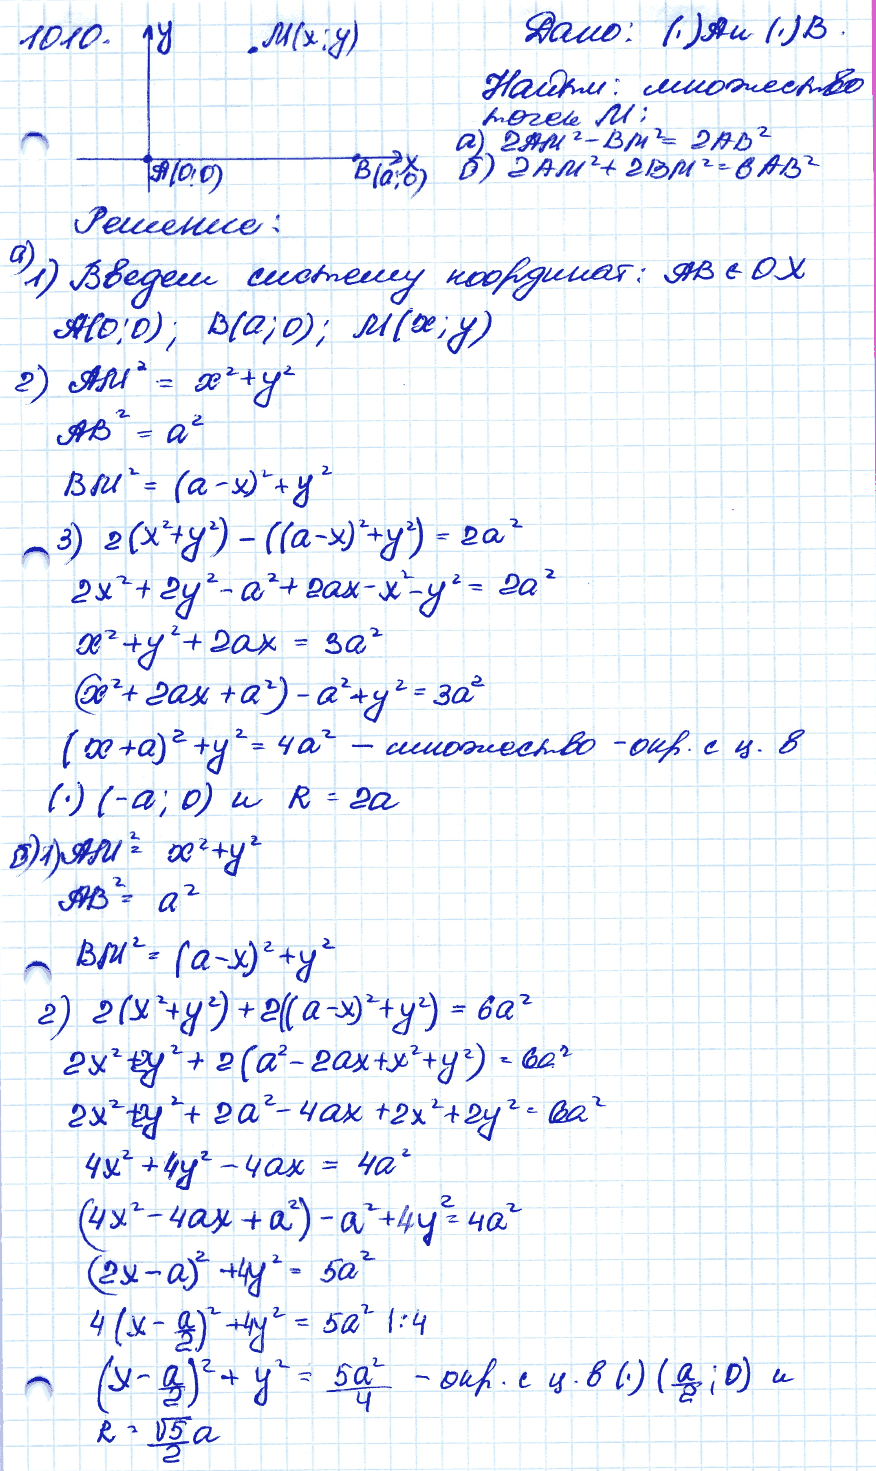 1010.
y
M(x; y)
Дано: (·)A и (·)B.
Найти: множество
точек M:
а) 2AM² − BM² = 2AB²
б) 2AM² + 2BM² = 6AB²
A(0;0)
B(a;0)
x
Решение:
а)
1) Введем систему координат: AB ∈ OX
A(0;0); B(a;0); M(x; y)
2) AM² = x² + y²
AB² = a²
BM² = (a − x)² + y²
3) 2(x² + y²) − ((a − x)² + y²) = 2a²
2x² + 2y² − a² + 2ax − x² − y² = 2a²
x² + y² + 2ax = 3a²
(x² + 2ax + a²) − a² + y² = 3a²
(x + a)² + y² = 4a² – множество - окр. с ц. в
(·) (−a; 0) и R = 2a
б) 1) AM² = x² + y²
AB² = a²
BM² = (a − x)² + y²
2) 2(x² + y²) + 2((a − x)² + y²) = 6a²
2x² + 2y² + 2(a² − 2ax + x² + y²) = 6a²
2x² + 2y² + 2a² − 4ax + 2x² + 2y² = 6a²
4x² + 4y² − 4ax = 4a²
(4x² − 4ax + a²) − a² + 4y² = 4a²
(2x − a)² + 4y² = 5a²
4(x − a/2)² + 4y² = 5a² |:4
(x − a/2)² + y² = 5a²/4 - окр. с ц. в (·) (a/2; 0) и
R = √5/2 a